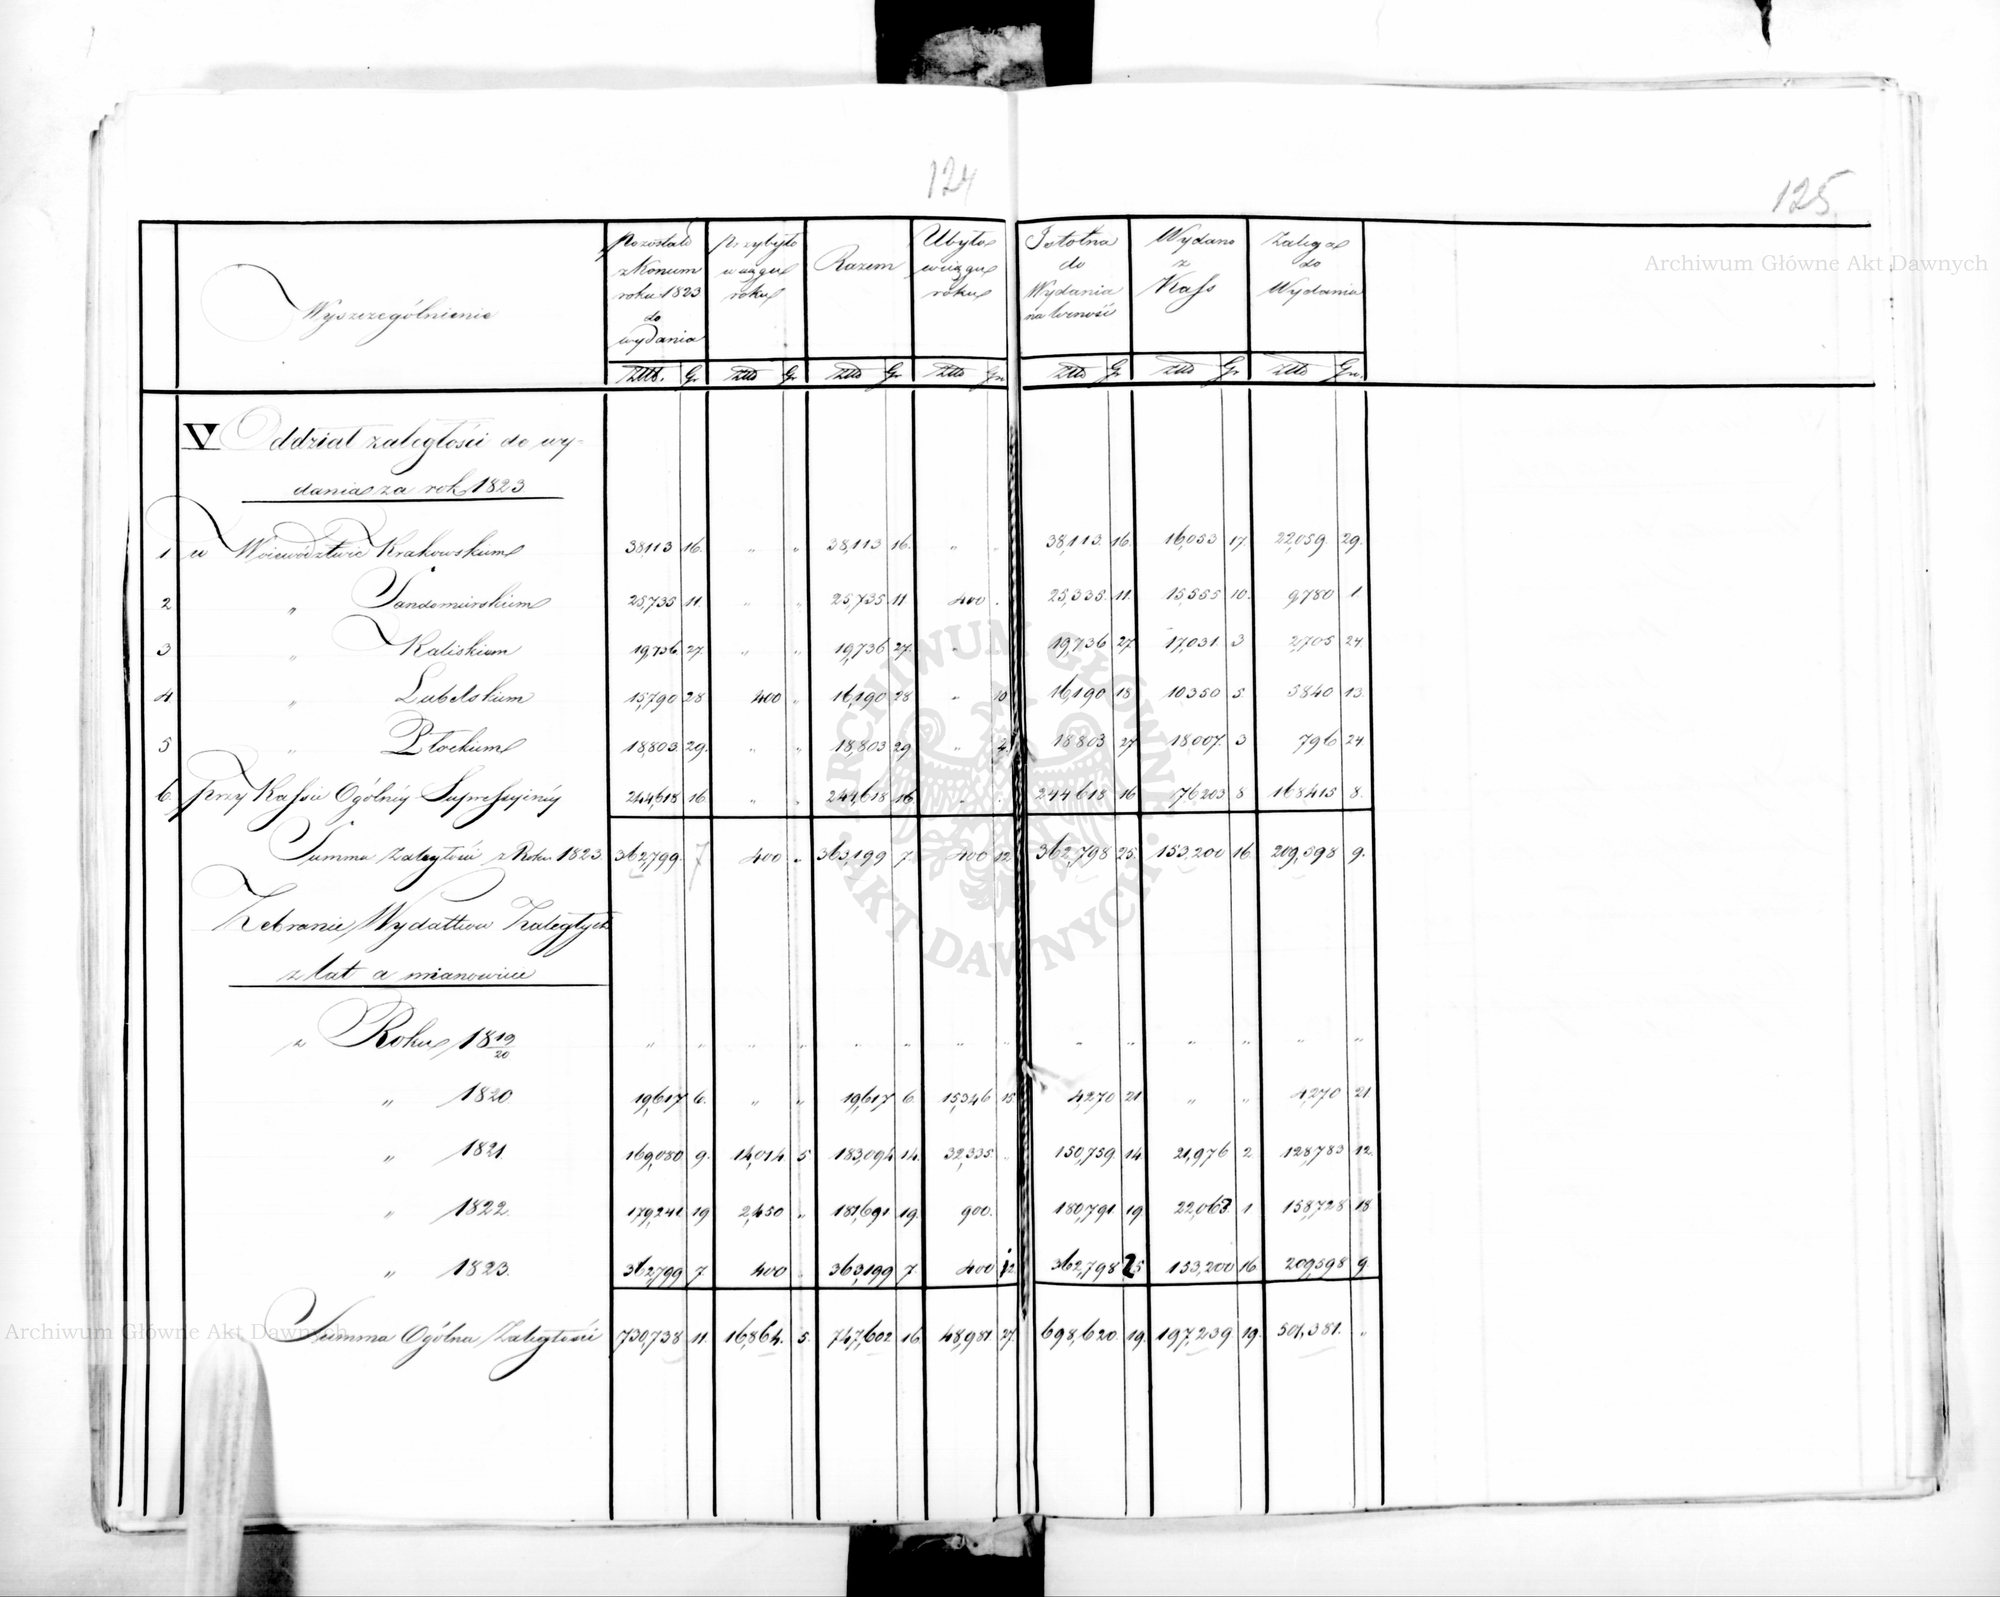 124
125
Wyszczególnienie
Pozostało z Koncem roku 1823 do wydania
Przybyło w ciągu roku
Razem
Ubyło w ciągu roku
Istotna do Wydania należność
Wydano z Kass
Zalega do Wydania
Złtt. Gr Złtt Gr Złtt Gr Złtt Gr Złtt Gr Złtt Gr Złtt Gr.
V Oddział zaległości do wy-
dania za rok 1823
1 w Woiewództwie Krakowskiem 38113 16. " " 38,113 16. " " 38,113. 16. 16,053 17. 22,059 29.
2 " Sandomirskiem 25,735 11. " " 25,735 11 400 . 25,335. 11. 15,555 10. 9,780 1
3 " Kaliskiem 19,736 27. " " 19,736 27. " 19,736 27. 17,031. 3 2,705 24.
4 " Lubelskiem 15,790 28 400 " 16,190 28 " 10 16,190 18 10350 5. 5840 13.
5 " Płockiem 18,803. 29. " " 18,803 29 " 2. 18803 27 18007. 3 796 24.
6. przy Kassie Ogólnéy Supressyinéy 244,618 16 " " 244,618 16 " . 244618 16 76203 8 168415 8.
Summa Zaległości z Roku 1823. 362,799. 7 400 " 363,199 7. 400 12 362,798 25. 153,200 16. 209,598 9.
Zebranie Wydatków Zaległych
z lat a mianowicie
z Roku 18 19/20 " " " " " " " " " " " " " "
" 1820. 19,617 6. " " 19,617 6. 15,346 15. 4,270 21 " " 4,270 21
" 1821. 169,080 9. 14,014 5 183,094 14. 32,335. " 150,759 14 21,976 2 128,783 12.
" 1822. 179,241 19 2,450 " 181,691 19. 900. 180,791 19. 22,063. 1 158,728 18
" 1823. 362,799 7. 400 . 363,199 7 400 12 362,798 25 153,200 16. 209,598 9.
Summa Ogólna Zaległości 730,738 11. 16,864. 5. 747,602 16 48,981 27. 698,620. 19. 197,239 19. 501,381. "
Archiwum Główne Akt Dawnych
Archiwum Główne Akt Dawnych
ARCHIWUM GŁÓWNE AKT DAWNYCH